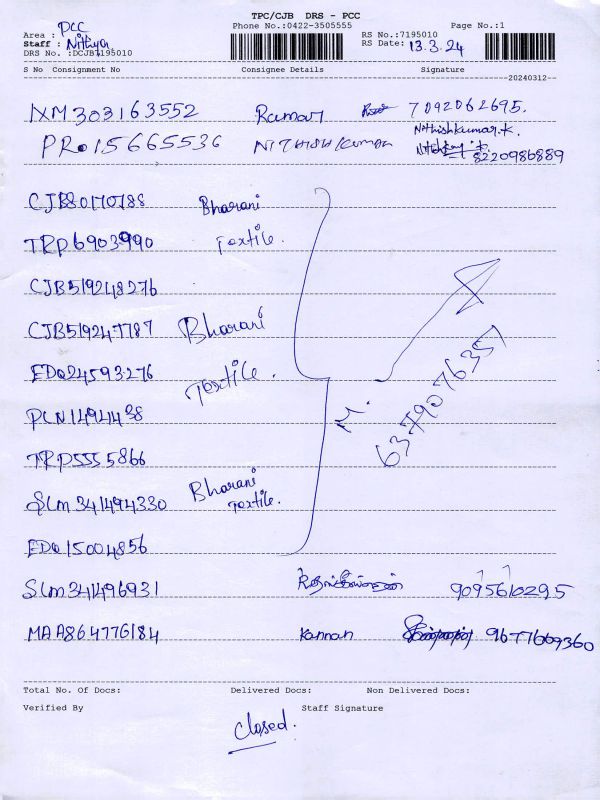 TPC/CJB DRS - PCC
Phone No.:0422-3505555 Page No.:1
Area : PCC
Staff : Nithya
RS No.:7195010
RS Date: 13.3.24
DRS No. :DCJB7195010
S No Consignment No Consignee Details Signature
20240312
NM303163552 Raman 7092062695.
PR015665536 NITHISHKUMAR Nithishkumar.K. 8220986889
CJB80170788 Bharani
TRP6903990 Textile.
CJB519248276
CJB519247787 Bharani
EDQ24593276 Textile. M. 6379076357
PLN1494438
TRP5555866
SLM341494330 Bharani Textile.
EDQ15004856
SLM341496931 9095610295
MAA864776184 Kannan 9677669360
Total No. Of Docs: Delivered Docs: Non Delivered Docs:
Verified By Staff Signature
Closed.